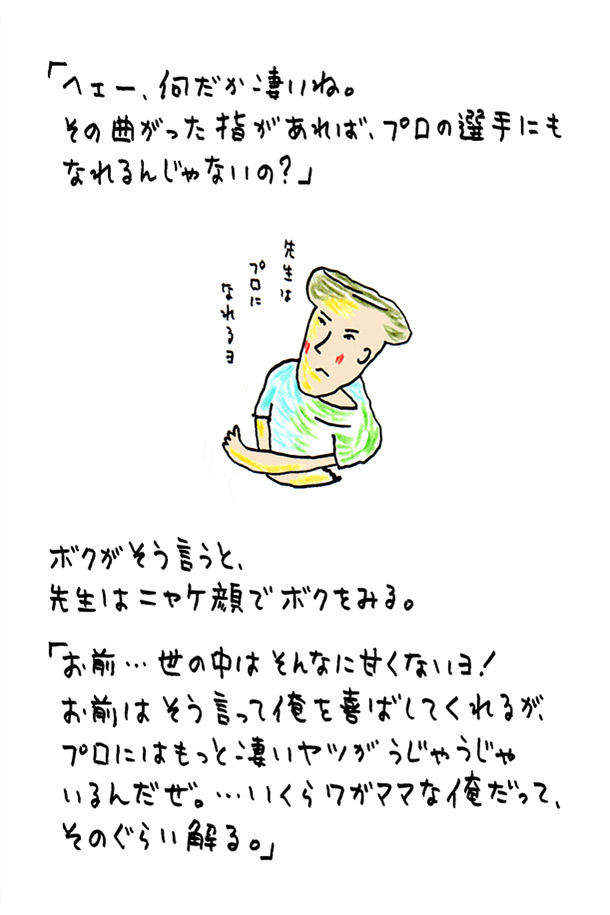 「ヘェー、何だか凄いね。
その曲がった指があれば、プロの選手にも
なれるんじゃないの?」
先生は
プロに
なれるヨ
ボクがそう言うと、
先生はニヤケ顔でボクをみる。
「お前…世の中はそんなに甘くないヨ!
お前はそう言って俺を喜ばしてくれるが、
プロにはもっと凄いヤツがうじゃうじゃ
いるんだぜ。…いくらワガママな俺だって、
そのぐらい解る。」